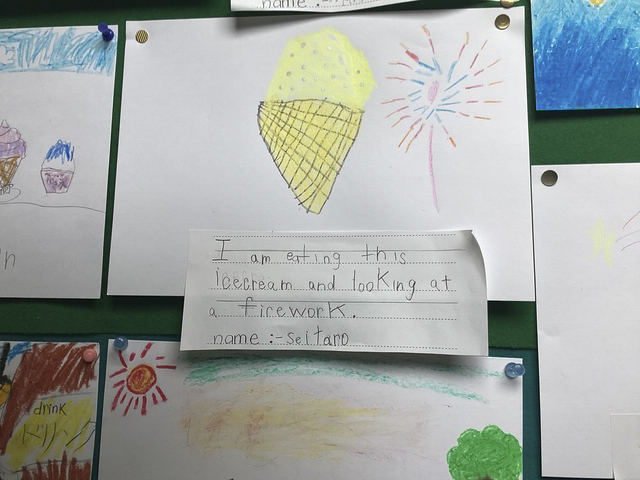 name :-
I am eating this
icecream and looking at
a firework.
name :- seitaro
drink
ドリンク